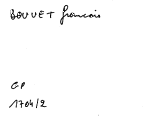 BOUVET francois
GP
1704/2